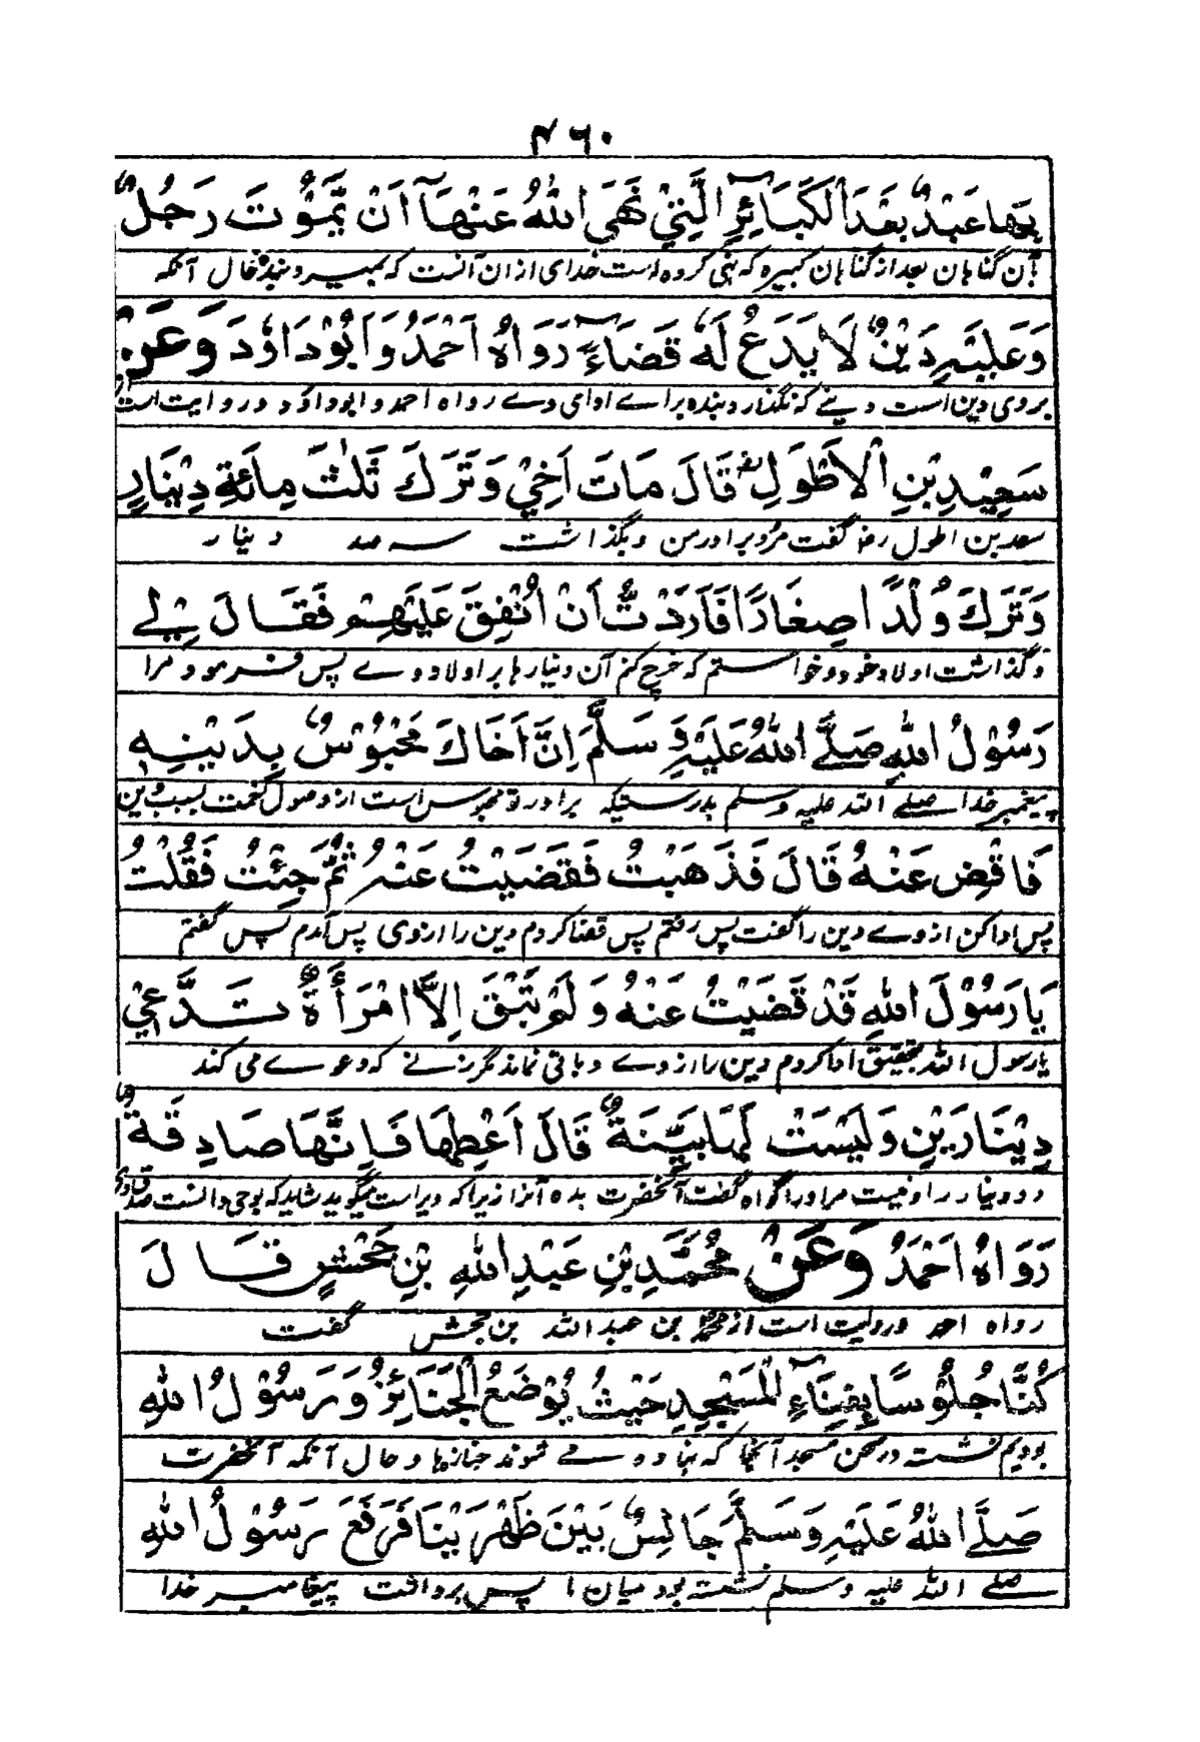 ۴۶۰
بِهَا عَبْدٌ بَعْدَ الْكَبَائِرِ الَّتِيْ نَهَى اللهُ عَنْهَا آنْ يَّمُوْتَ رَجُلٌ
بآن گناہان بعد از گناہان کبیرہ کہ نہی کردہ است خدای از ان آنست کہ بمیرد بندہ حال آنکہ
وَعَلَيْهِ دَيْنٌ لَا يَدَعُ لَهٗ قَضَاءً رَوَاهُ اَحْمَدُ وَاَبُوْدَاوٗدَ وَعَنْ
بروی دین است دینے کہ نگذارد بندہ برائے ادامی دے رواہ احمد و ابوداؤد و روایت است
سَعِيْدِ بْنِ الْاَطْوَلِ رض قَالَ مَاتَ اَخِيْ وَتَرَكَ ثَلٰثَ مِائَةِ دِيْنَارٍ
سعد بن اطول رض گفت مرد برادر من و بگذاشت سہ صد دینار
وَتَرَكَ وُلْدًا صِغَارًا فَاَرَدْتُّ اَنْ اُنْفِقَ عَلَيْهِمْ فَقَالَ لِيْ
و گذاشت اولاد خورد و خواستم کہ خرچ کنم آن دینارہا بر اولاد وے پس فرمود مرا
رَسُوْلُ اللهِ صَلَّے اللهُ عَلَيْهِ وَ سَلَّمَ اِنَّ اَخَاكَ مَحْبُوْسٌ بِدَيْنِهٖ
پیغمبر خدا صلے اللہ علیہ وسلم بدرستیکہ برادر تو محبوس است از وصول بسبب دین
فَاقْضِ عَنْهُ قَالَ فَذَهَبْتُ فَقَضَيْتُ عَنْهُ ثُمَّ جِئْتُ فَقُلْتُ
پس ادا کن از وے دین را گفت پس رفتم پس قضا کردم دین را از وی پس آمدم پس گفتم
يَا رَسُوْلَ اللهِ قَدْ قَضَيْتُ عَنْهُ وَلَمْ تَبْقَ اِلَّا امْرَأَةٌ تَدَّعِيْ
یا رسول اللہ بتحقیق ادا کردم دین را از وے و باقی نماند مگر زنے کہ دعوے می کند
دِيْنَارَيْنِ وَلَيْسَتْ لَهَا بَيِّنَةٌ قَالَ اَعْطِهَا فَاِنَّهَا صَادِقَةٌ
دو دینار را و نیست مر او را گواہ گفت آنحضرت بدہ آنرا زیرا کہ وی راست میگوید شاید کہ بوحی دانست
رَوَاهُ اَحْمَدُ وَعَنْ مُحَمَّدِ بْنِ عَبْدِ اللهِ بْنِ جَحْشٍ قَالَ
رواہ احمد و روایت است از محمد بن عبد اللہ بن جحش گفت
كُنَّا جُلُوْسًا بِفِنَاءِ الْمَسْجِدِ حَيْثُ يُوْضَعُ الْجَنَائِزُ وَرَسُوْلُ اللهِ
بودیم نشستہ در صحن مسجد آنجا کہ نہادہ مے شوند جنازہا و حال آنکہ آنحضرت
صَلَّے اللهُ عَلَيْهِ وَسَلَّمَ جَالِسٌ بَيْنَ ظَهْرَيْنَا فَرَفَعَ رَسُوْلُ اللهِ
صلے اللہ علیہ وسلم نشستہ بود میان ما پس برداشت پیغامبر خدا